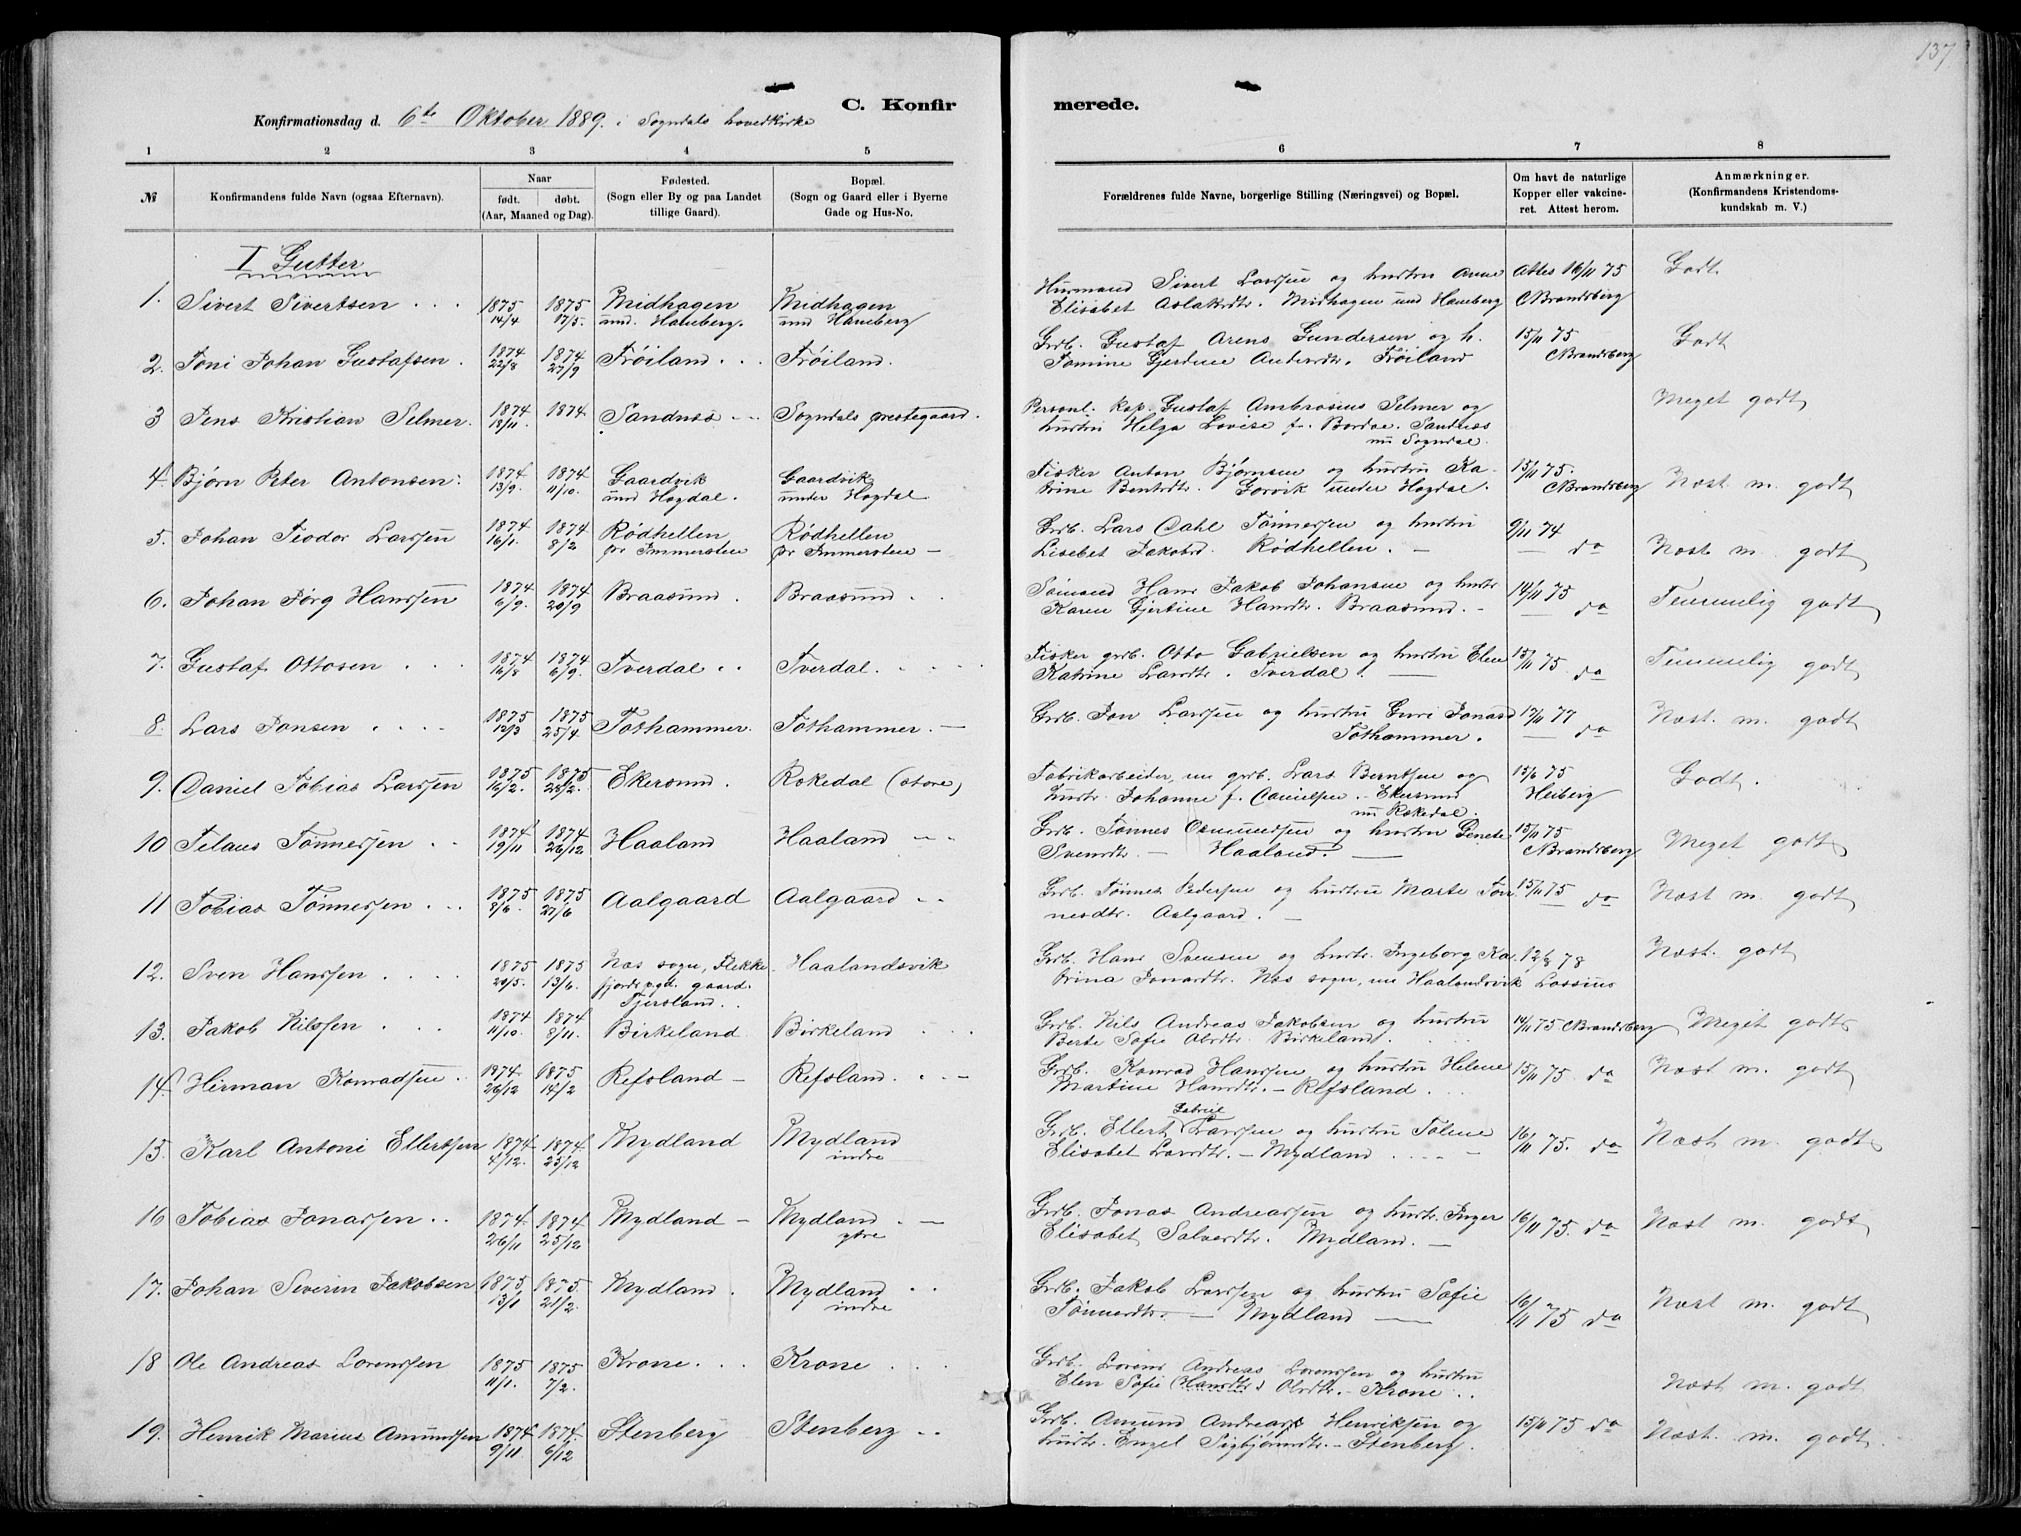 137
C. Konfirmerede.
Konfirmationsdag d. 6te Oktober 1889. i Sogndals hovedkirke
1 2 3 4 5 6 7 8
№ Konfirmandens fulde Navn (ogsaa Efternavn). Naar født. døbt. (Aar, Maaned og Dag). Fødested. (Sogn eller By og paa Landet tillige Gaard). Bopæl. (Sogn og Gaard eller i Byerne Gade og Hus-No. Forældrenes fulde Navne, borgerlige Stilling (Næringsvei) og Bopæl. Om havt de naturlige Kopper eller vakcineret. Attest herom. Anmærkninger. (Konfirmandens Kristendomskundskab m. V.)
I Gutter
1. Sivert Sivertsen 1875 14/4 1875 17/5 Midhagen und. Haneberg. Midhagen und Haneberg Husmand Sivert Larssen og hustru Anne Elisabet Aslaksdtr. Midhagen und Haneberg Attes 16/11 75 Brandsberg Godt.
2. Toni Johan Gustafsen. 1874 22/8 1874 27/9 Frøiland Frøiland. Grb. Gustaf Arens Gundersen og h. Tomine Gjerdine Andersdtr. Frøiland 15/11 75 Brandsberg Godt
3 Jens Kristian Selmer. 1874 18/11. 1874 Sandnes Sogndals prestegaard. Personl. Kap. Gustaf Ambrosius Selmer og hustru Helga Lovise f. Sandnes nu Sogndal. Meget godt
4. Bjørn Peter Antonsen. 1874 13/9. 1874 11/10. Gaardvik und Hogdal. Gaardvik under Hogdal Fisker Anton Bjørnsen og hustru Katrine Bentsdtr. Gorvik under Hogdal. 15/11 75. Brandsberg Næst m. godt
5. Johan Teodor Larssen 1874 16/1. 1874 8/2 Rødhellen pr Immerstein Rødhellen pr Immerstein Grb. Lars Dahl Tønnessen og hustru Lisebet Jakobsd. Rødhellen. 9/11 74 do Næst m. godt
6. Johan Jørg Hanssen 1874 6/9. 1874 20/9 Braasund. Braasund Sømand Hans Jakob Johansen og hustr Karen Gjertine Hansdtr. Braasund. 14/11 75 do Temmelig godt
7. Gustaf Ottosen 1874 16/8 1874 6/9. Tverdal Tverdal. Fisker grb. Otto Gabrielsen og hustru Elen Katrine Larsdtr. Tverdal. 15/11 75. do Temmelig godt
8. Lars Jonsen 1875 12/3 1875 25/4. Tothammer. Tothammer. Grb. Jon Larssen og hustru Guri Jonasd Tothammer. 17/11 77 do Næst. m. godt
9. Daniel Tobias Larssen 1875 16/2. 1875 28/2. Ekersund. Rekedal (store) Fabrikarbeider, nu grb. Lars Berntsen og hustr. Johanne f. Danielsen. Ekersund nu Rekedal. 15/6 75 Heiberg Godt.
10 Telaus Tønnessen 1874 19/11 1874 26/12 Haaland Haaland Grb. Tønnes Osmundsen og hustru Svensdtr. Haaland. 15/11 75 Brandsberg Meget godt
11 Tobias Tønnessen 1875 8/6. 1875 27/6 Aalgaard Aalgaard Grb. Tønnes Pedersen og hustru Marte Tønnesdtr. Aalgaard. 15/11 75 do Næst m. godt
12. Sven Hanssen 1875 20/5. 1875 13/6. Næs sogn, Flekkefjords pgd. gaard. Tjersland. Haalandsvik Grb. Hans Svensen og hustr. Ingeborg Katrina Jonasdtr. Næs sogn, nu Haalandsvik 12/8 78 Lassius Næst. godt
13. Jakob Nilssen 1874 11/10. 1874 8/11. Birkeland Birkeland Grb. Nils Andreas Jakobsen og hustru Berte Sofie Olsdtr. Birkeland. 14/11 75 Brandsberg Meget godt
14. Herman Konradsen 1874. 26/12 1875 14/2 Refsland Refsland. Grb. Konrad Hanssen og hustru Helene Martine Hansdtr. Refsland. 15/11 75. do Næst m. godt
15. Karl Antoni Ellertsen 1874 4/12. 1874 25/12 Mydland Mydland indre Grb. Ellert Gabriel Larssen og hustru Tolene Elisabet Larsdtr. Mydland 16/11 75. do Næst m. godt
16 Tobias Jonassen 1874 26/11 1874 25/12 Mydland Mydland. ytre Grb. Jonas Andreassen og hustr. Inger Elisabet Salvesdtr. Mydland. 16/11 75. do Næst m. godt
17. Johan Severin Jakobsen 1875 13/1 1875. 21/2. Mydland. Mydland indre Grb. Jakob Larssen og hustru Sofie Tønnesdtr. Mydland 16/11 75 do Næst m. godt
18 Ole Andreas Lorentssen 1875 11/1. 1875 7/2. Krone Krone Grb. Lorents Andreas Lorentssen og hustru Elen Sofie (Hansdtr) Olsdtr. Krone Næst m. godt
19. Henrik Marius Amundsen 1874 9/11 1874. 6/12 Stenberg Stenberg Grb. Amund Andreas Henriksen og hustr. Engel Sigbjørnsdtr. Stenberg. 15/11 75 do Næst. m. godt